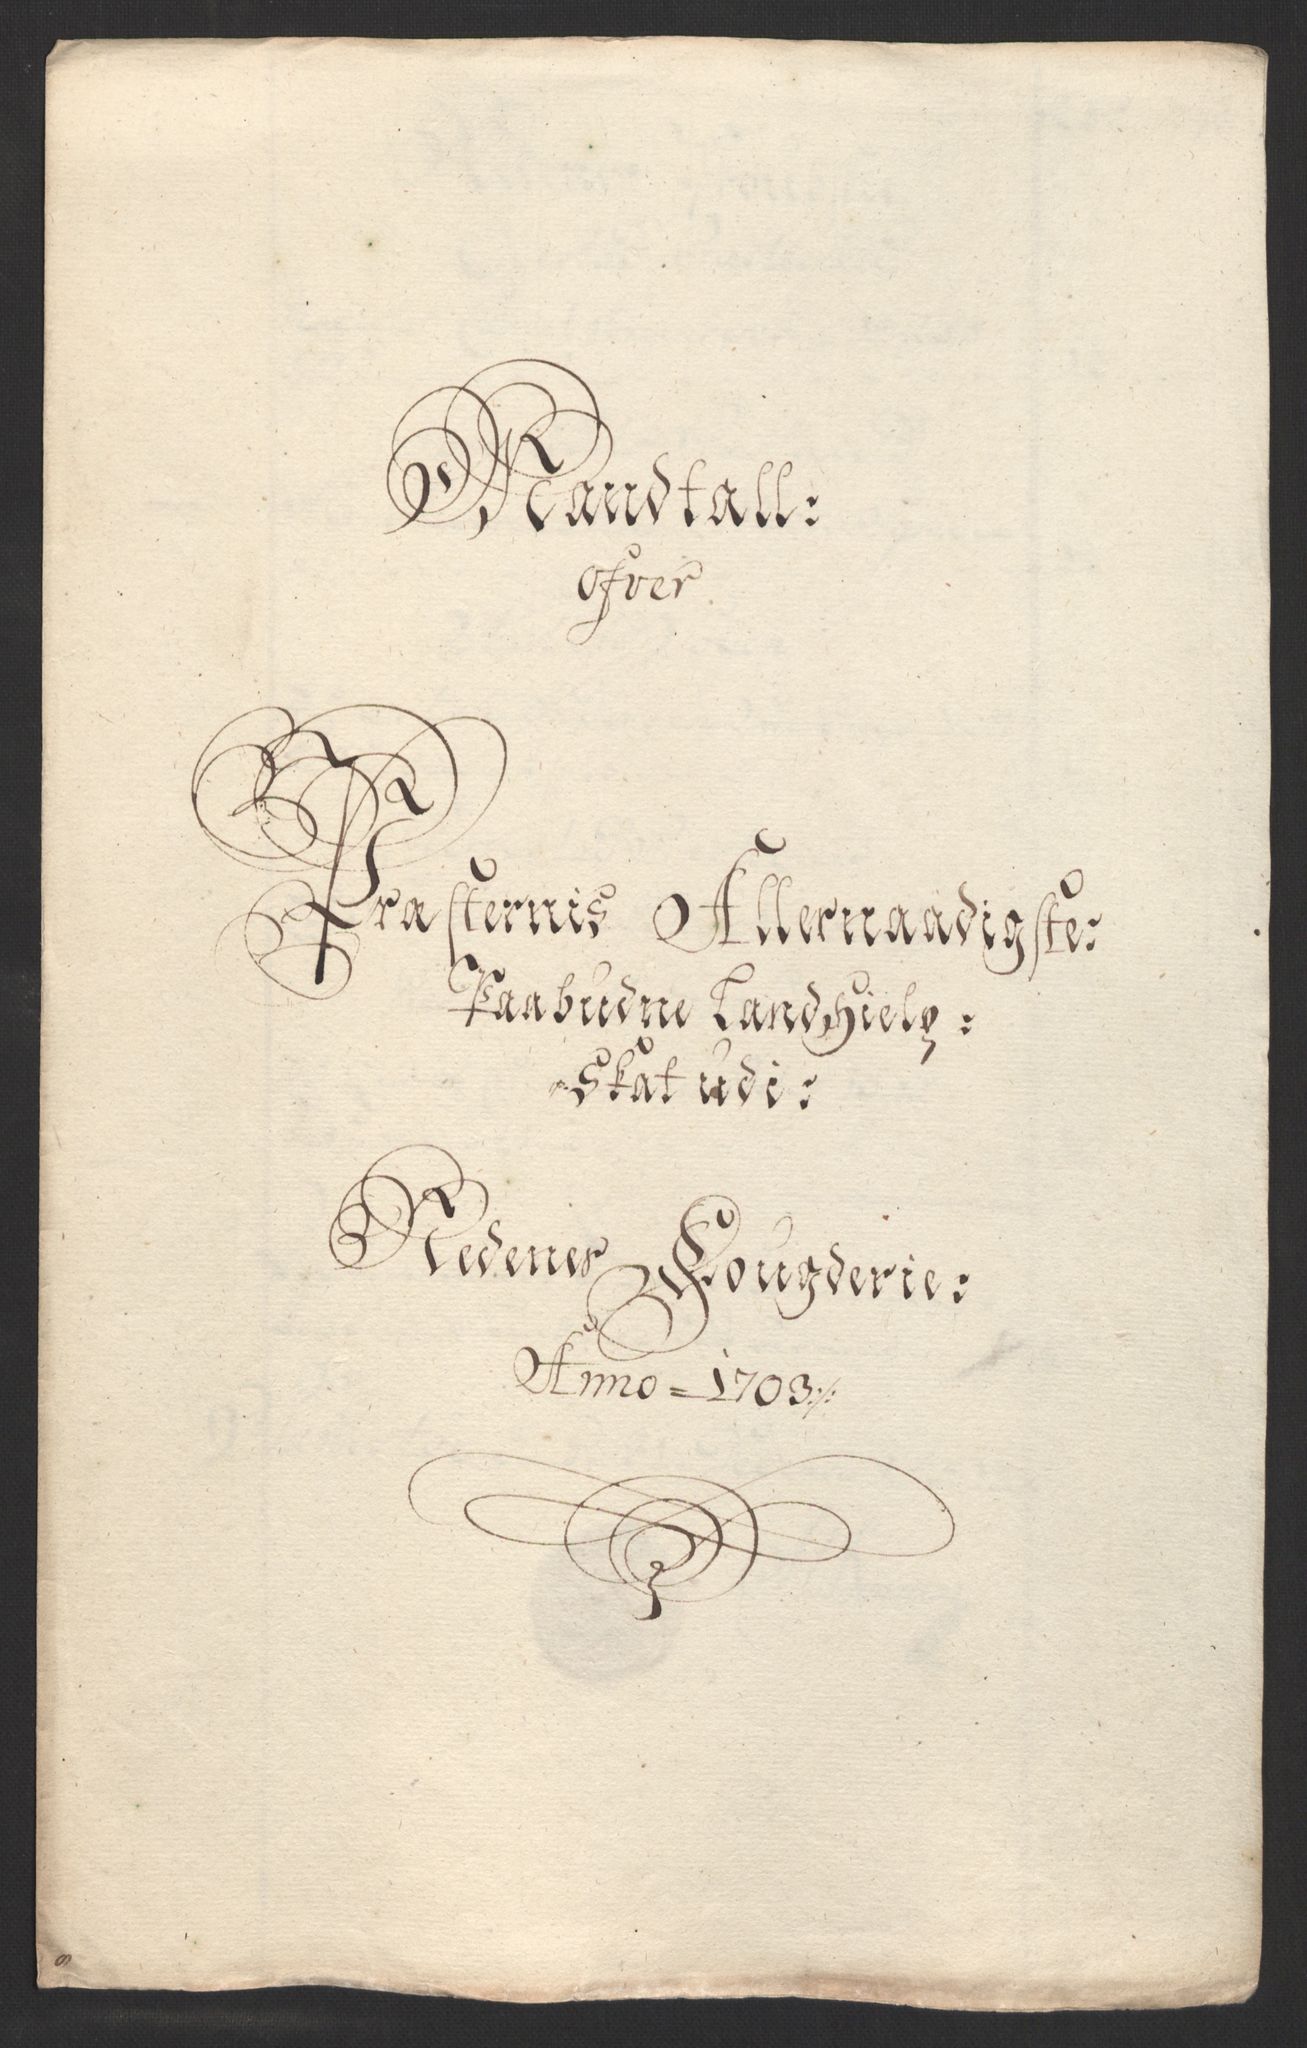 Mandtall:
ofver
Præsternis Allernaadigste:
Paabudne Landhielp:
Skat udi:
Nedenes Fougderie:
Anno = 1703 ./.